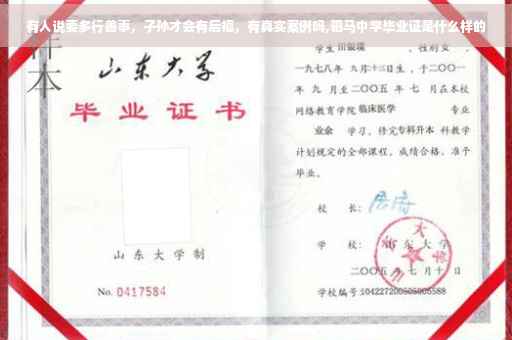 有人说要多行善事，子孙才会有后福，有真实案例吗,驻马中学毕业证是什么样的
样本
山东大学
毕业证书
山东大学制
No. 0417584
学生 田银瑞 ，性别女，
一九七八年 九月十三日生，于二〇〇一
年 九 月至二〇〇五 年 七 月在本校
网络教育学院 临床医学 专业
业余 学习，修完专科升本 科教学
计划规定的全部课程，成绩合格，准予
毕业。
校 长：
学 校：山东大学
二〇〇五 年 七 月十 日
学校编号:104227200505005588